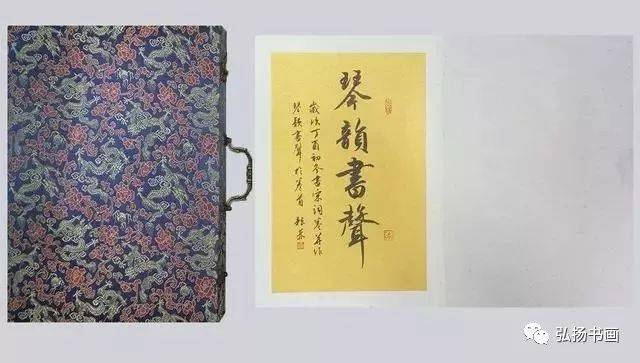 琴韻書聲
歲次丁酉初冬書宋詞卷并作
琴韻書聲於卷首
弘扬书画